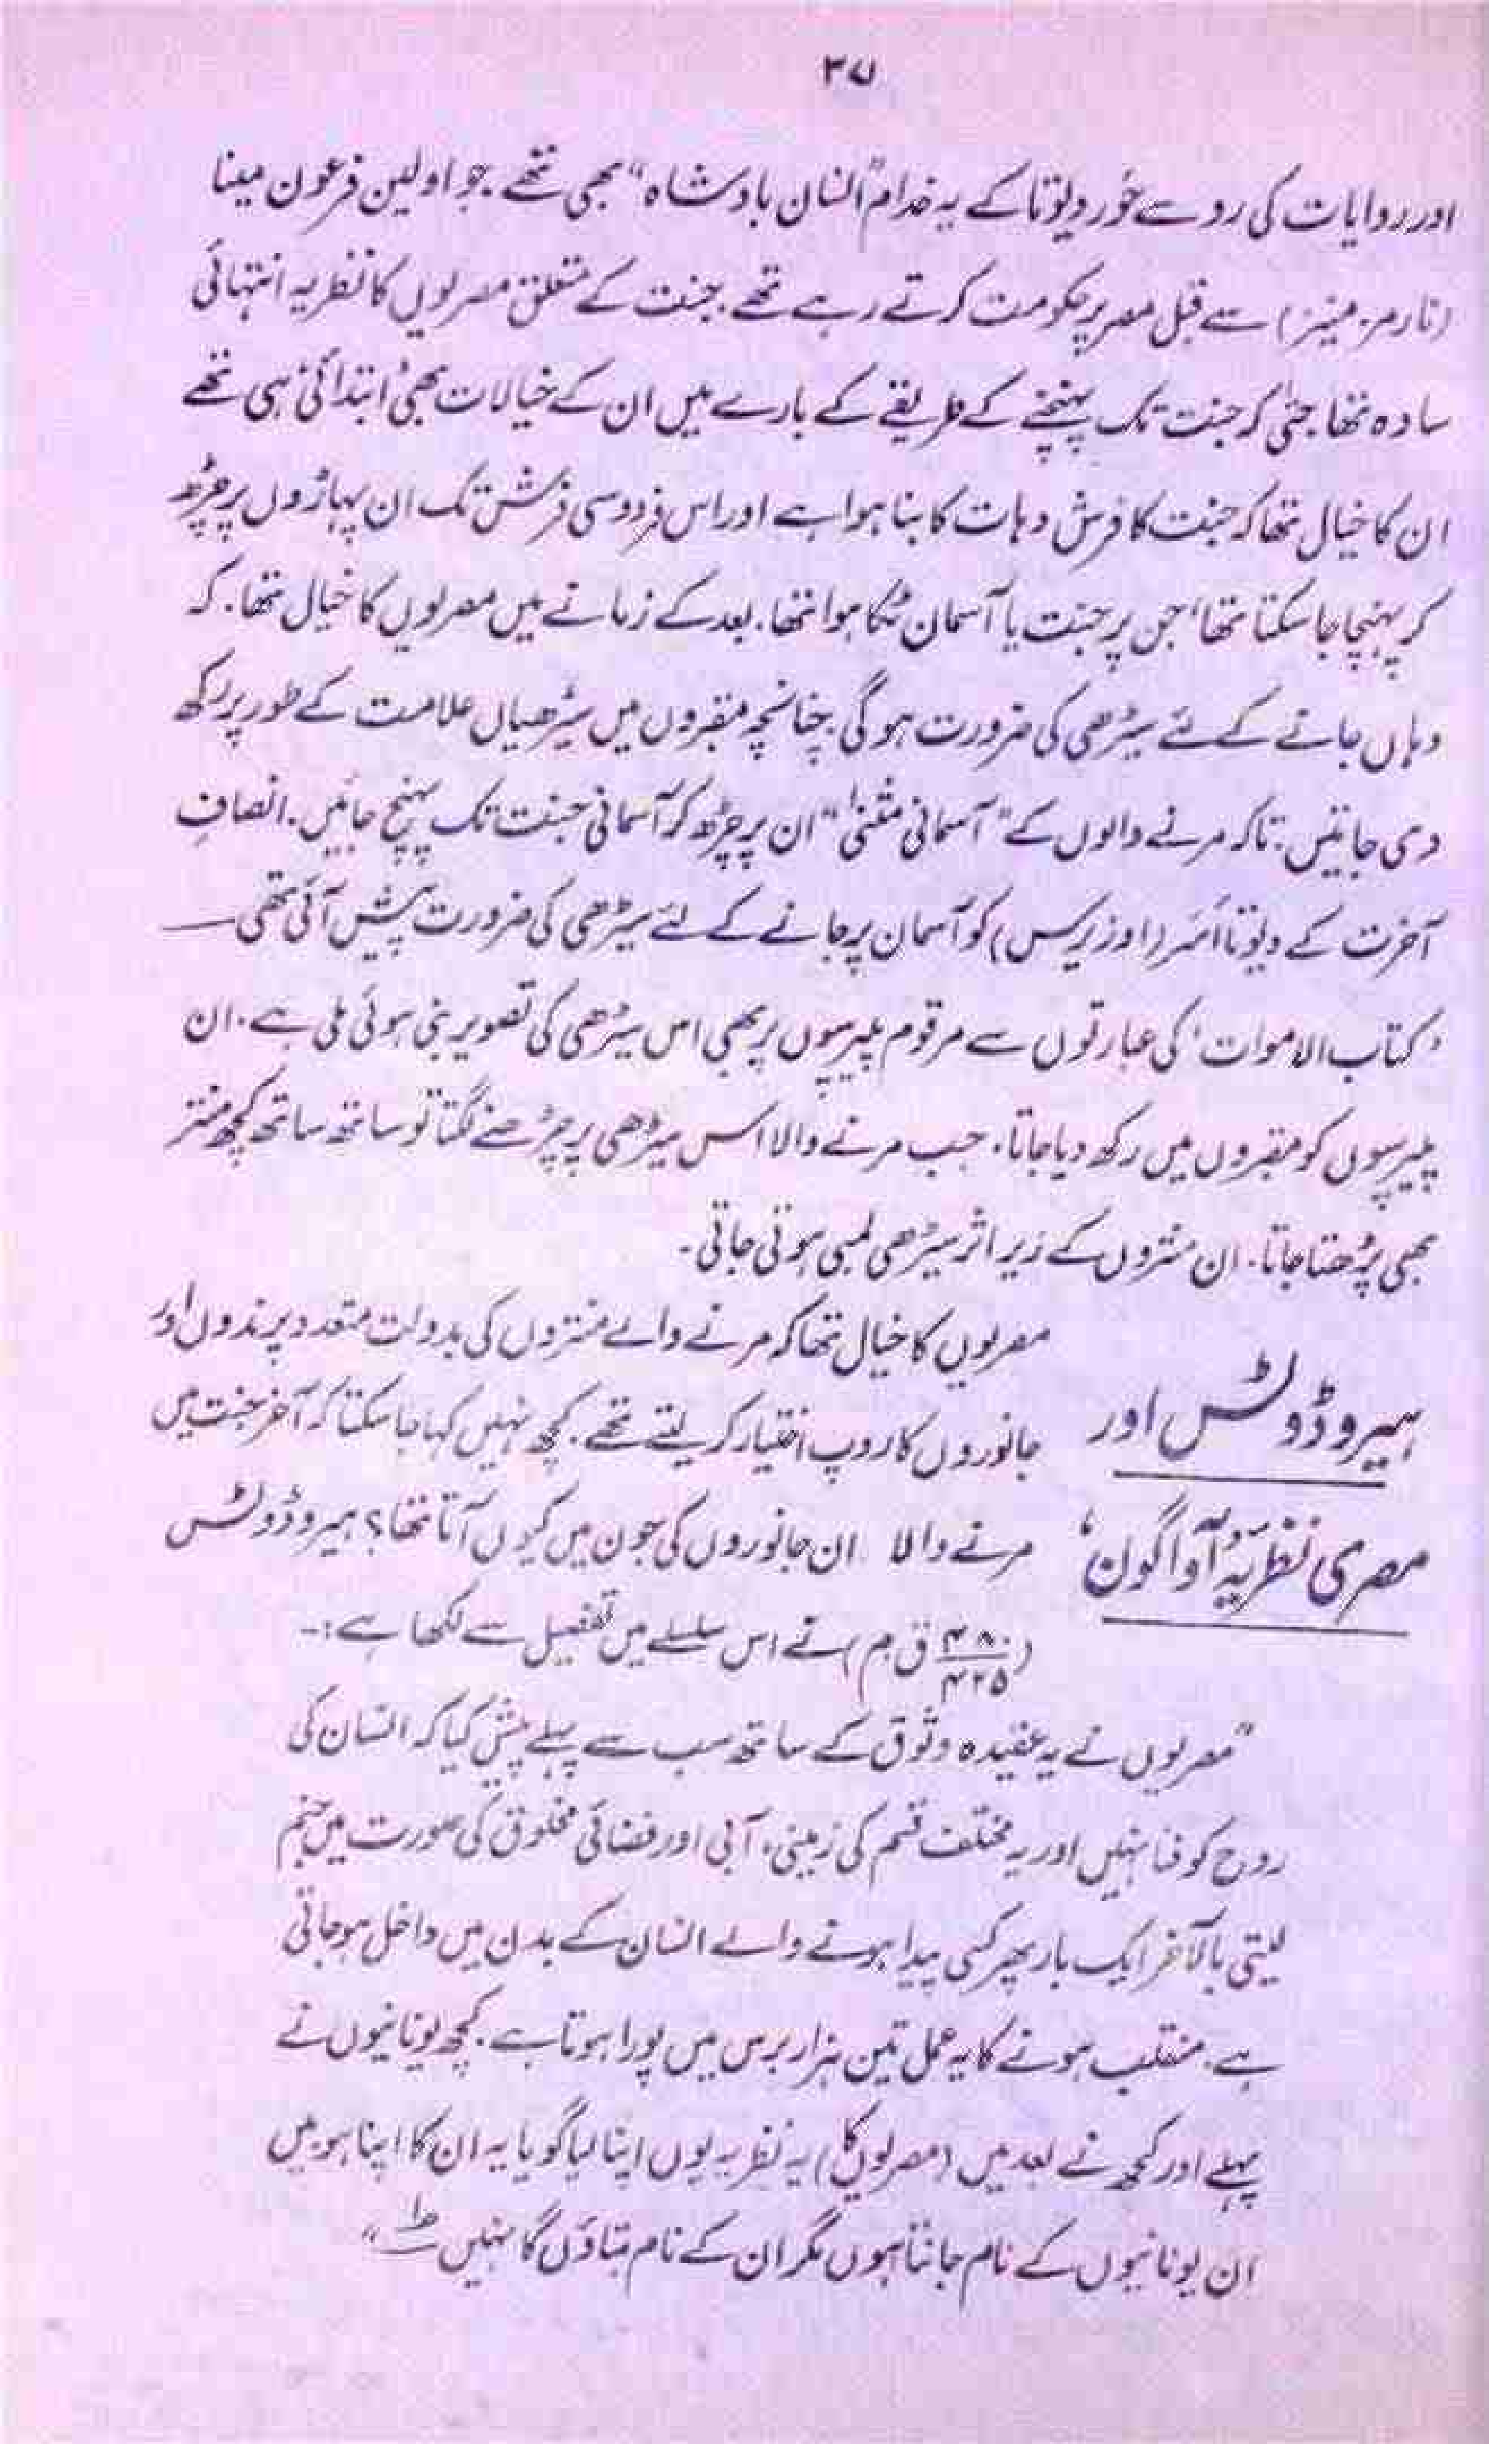 ۳۷
اور روایات کی رو سے حُور دیوتا کے یہ خدام "انسان بادشاہ" بھی تھے۔ جو اولین فرعون مینا
(نارمر۔ مینیز) سے قبل مصر پر حکومت کرتے رہے تھے۔ جنت کے متعلق مصریوں کا نظریہ انتہائی
سادہ تھا۔ حتیٰ کہ جنت تک پہنچنے کے طریقے کے بارے میں ان کے خیالات بھی ابتدائی ہی تھے
ان کا خیال تھا کہ جنت کا فرش دہات کا بنا ہوا ہے اور اس فردوسی فرش تک ان پہاڑوں پر چڑھ
کر پہنچا جا سکتا تھا، جن پر جنت یا آسمان ٹکا ہوا تھا۔ بعد کے زمانے میں مصریوں کا خیال تھا۔ کہ
وہاں جانے کے لئے سیڑھی کی ضرورت ہوگی۔ چنانچہ مقبروں میں سیڑھیاں علامت کے طور پر رکھ
دی جاتیں۔ تاکہ مرنے والوں کے "آسمانی مثنیٰ" ان پر چڑھ کر آسمانی جنت تک پہنچ جائیں۔ انصافِ
آخرت کے دیوتا اَسَر (اوزیریس) کو آسمان پر جانے کے لئے سیڑھی کی ضرورت پیش آئی تھی ــــ
'کتاب الاموات' کی عبارتوں سے مرقوم پیپرسوں پر بھی اس سیڑھی کی تصویر بنی ہوئی ملی ہے۔ ان
پیپرسوں کو مقبروں میں رکھ دیا جاتا۔ جب مرنے والا اس سیڑھی پر چڑھنے لگتا تو ساتھ ساتھ کچھ منتر
بھی پڑھتا جاتا۔ ان منتروں کے زیر اثر سیڑھی لمبی ہوتی جاتی۔
ہیروڈوٹس اور
مصری نظریۂ آواگون'
مصریوں کا خیال تھا کہ مرنے والے منتروں کی بدولت متعدد پرندوں اور
جانوروں کا روپ اختیار کر لیتے تھے۔ کچھ نہیں کہا جا سکتا کہ آخر جنت میں
مرنے والا ان جانوروں کی جون میں کیوں آتا تھا؟ ہیروڈوٹس
(۴۸۰/۴۲۵ ق م) نے اس سلسلے میں تفصیل سے لکھا ہے:۔
"مصریوں نے یہ عقیدہ وثوق کے ساتھ سب سے پہلے پیش کیا کہ انسان کی
روح کو فنا نہیں اور یہ مختلف قسم کی زمینی، آبی اور فضائی مخلوق کی صورت میں جنم
لیتی بالآخر ایک بار پھر کسی پیدا ہونے والے انسان کے بدن میں داخل ہو جاتی
ہے۔ منقلب ہونے کا یہ عمل تین ہزار برس میں پورا ہوتا ہے۔ کچھ یونانیوں نے
پہلے اور کچھ نے بعد میں (مصریوں کا) یہ نظریہ یوں اپنا لیا گویا یہ ان کا اپنا ہو۔ میں
ان یونانیوں کے نام جانتا ہوں مگر ان کے نام بتاؤں گا نہیں ؂۱"